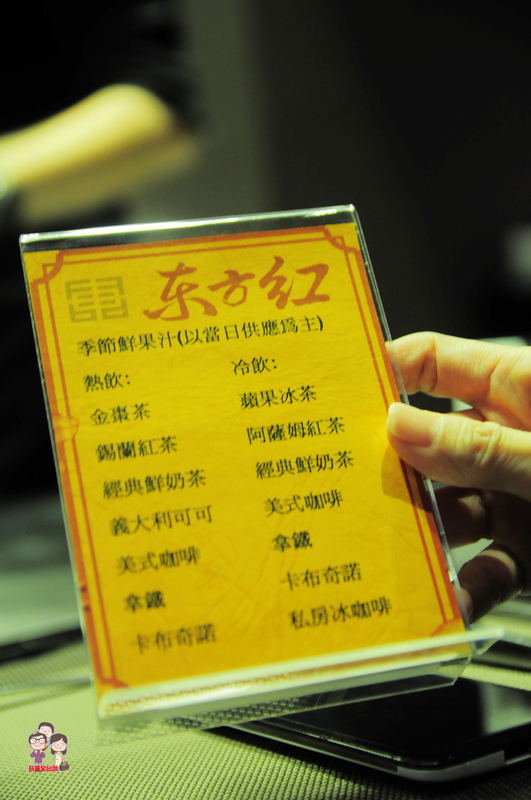 东方红
季節鮮果汁(以當日供應爲主)
熱飲:
金棗茶
錫蘭紅茶
經典鮮奶茶
義大利可可
美式咖啡
拿鐵
卡布奇諾
冷飲:
蘋果冰茶
阿薩姆紅茶
經典鮮奶茶
美式咖啡
拿鐵
卡布奇諾
私房冰咖啡